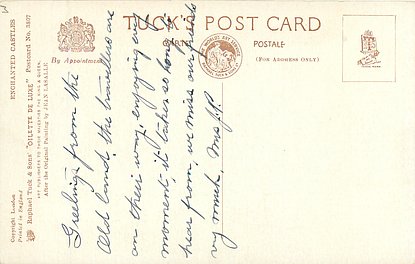 TUCK'S POST CARD
CARTE
POSTALE
(FOR ADDRESS ONLY)
By Appointment
ENCHANTED CASTLES Postcard No. 3107
Raphael Tuck & Sons' "OILETTE DE LUXE"
ART PUBLISHERS TO THEIR MAJESTIES THE KING & QUEEN.
After the Original Painting by JEAN LASALLE
Copyright, London
Printed in England
Greetings from the
Old land, the travellers are
on their way enjoying every
moment, it takes so long to
hear from, we miss our friends
very much. Mrs J.P.